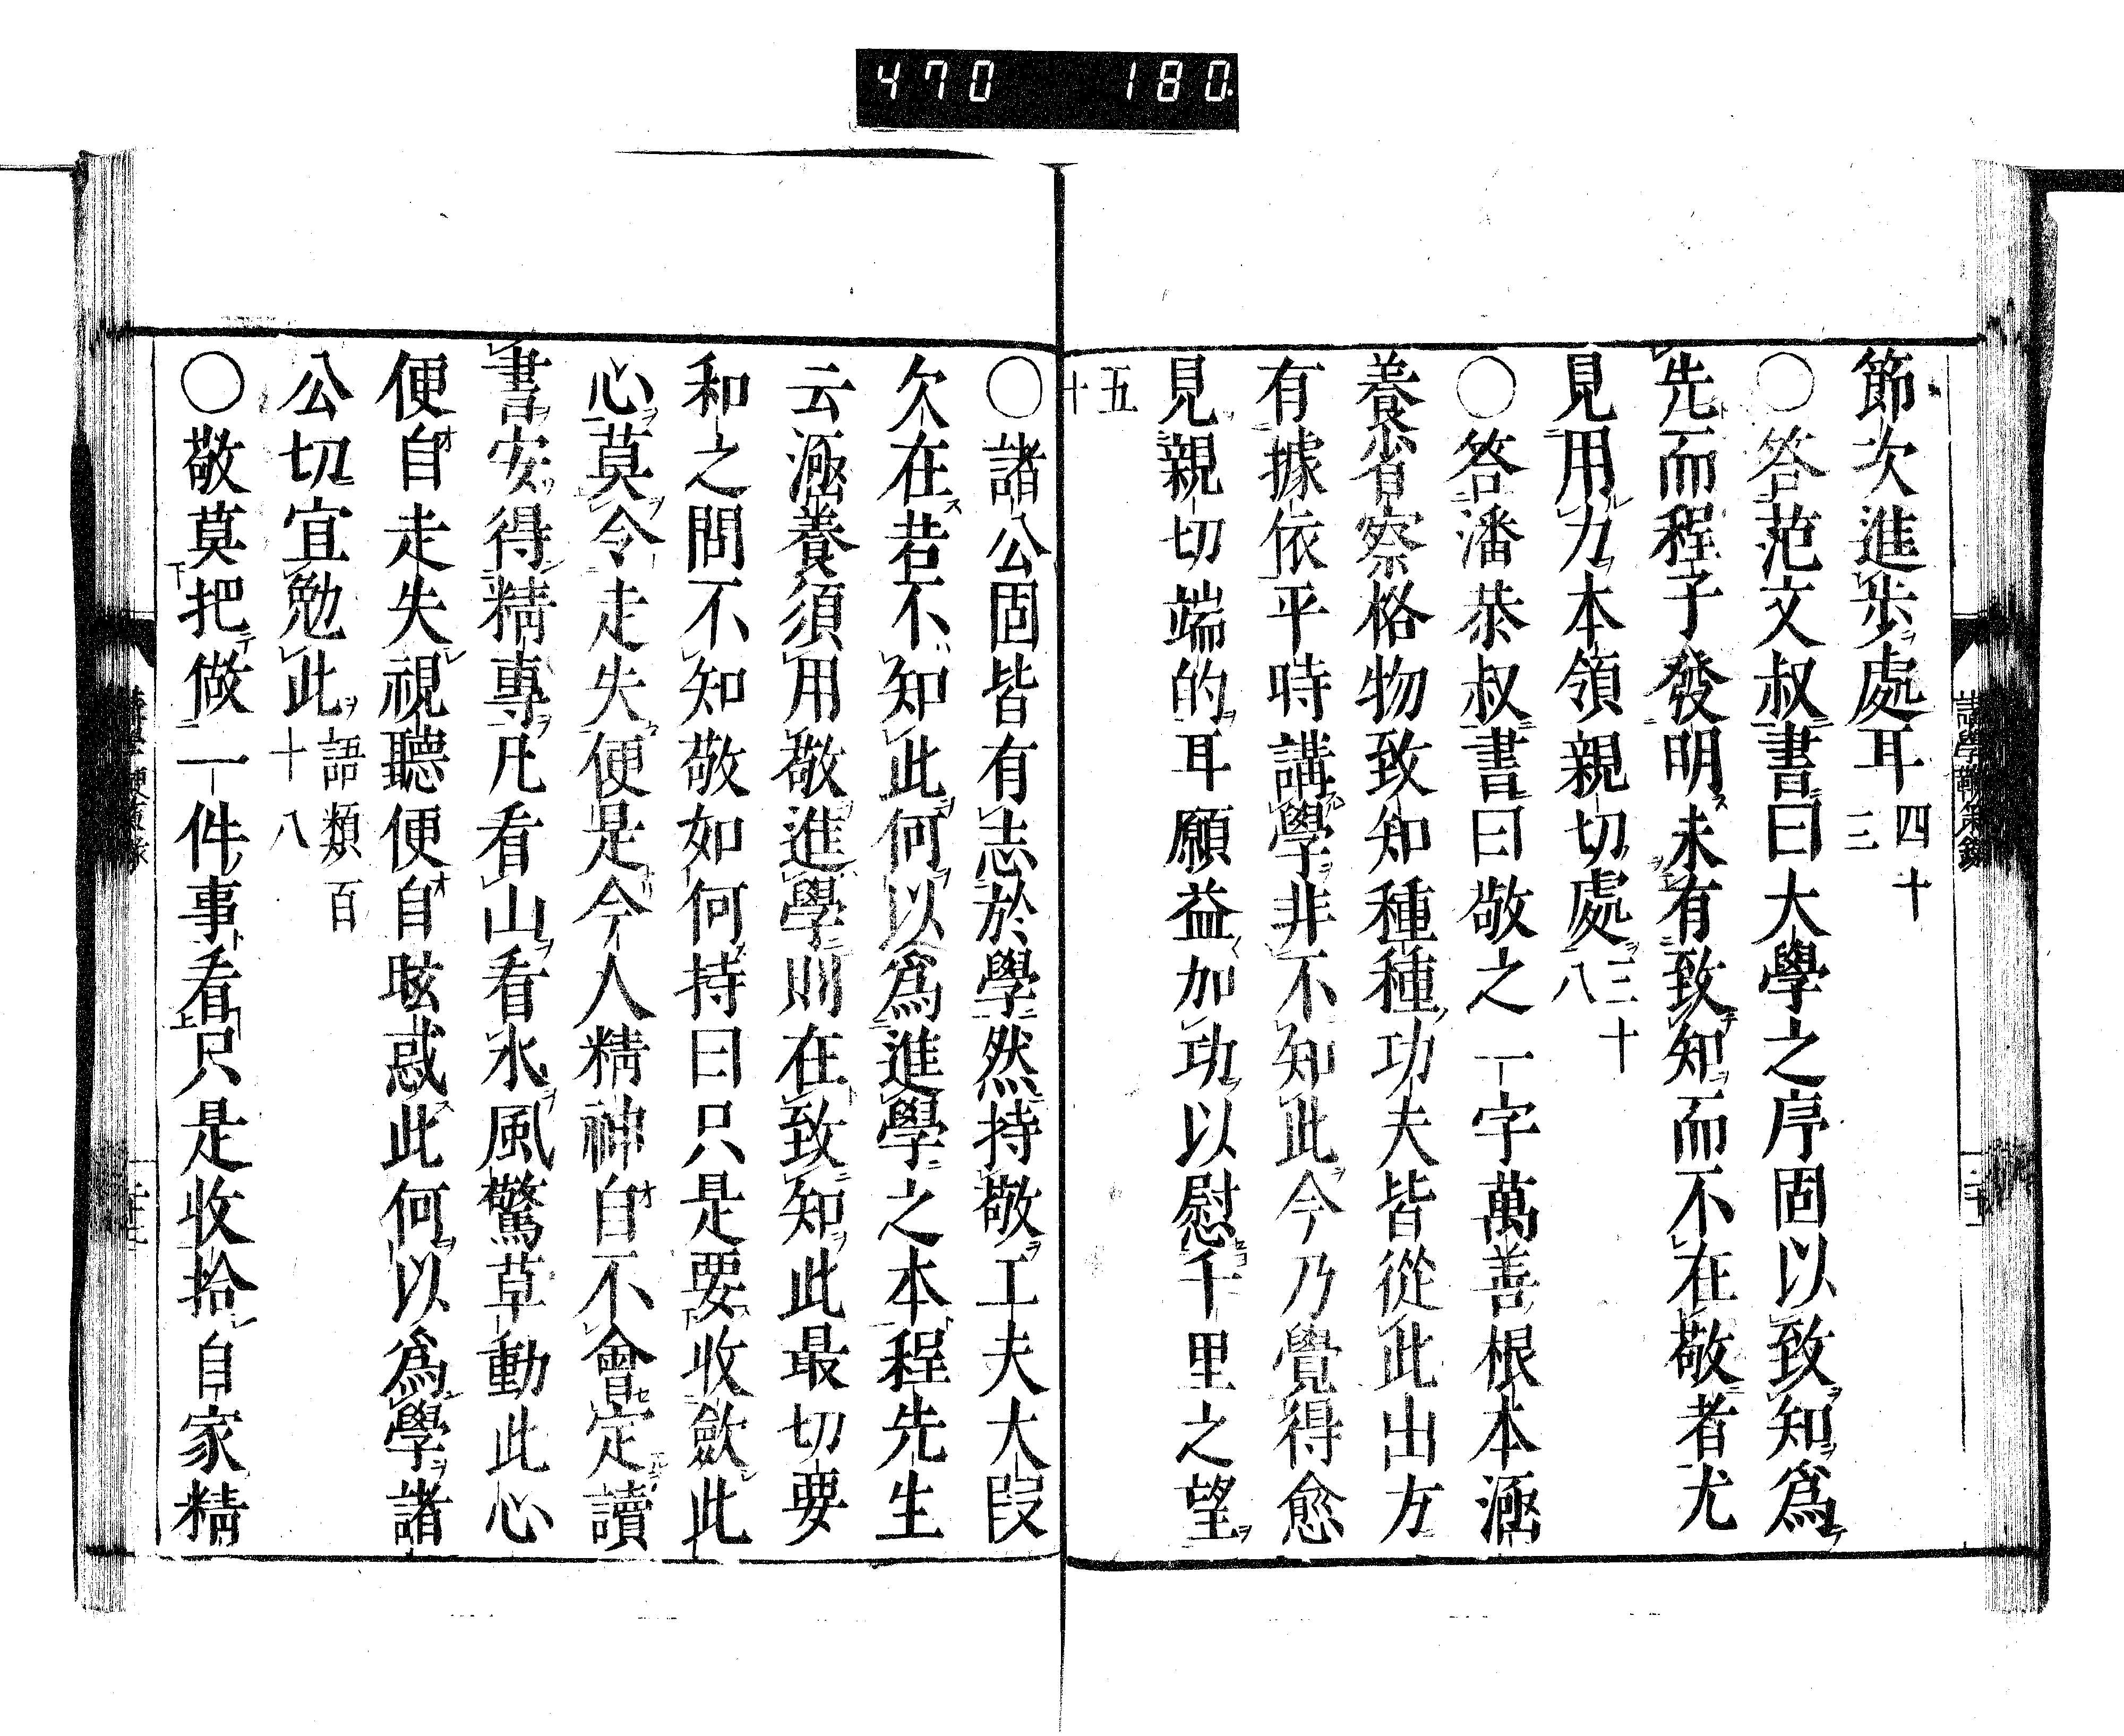 470 180
節次進步處耳四十三
○答范文叔書曰大學之序固以致知爲
先而程子發明未有致知而不在敬者尤
見用力本領親切處三十八
○答潘恭叔書曰敬之一字萬善根本涵
養省察格物致知種種功夫皆從此出方
有據依平時講學非不知此今乃覺得愈
見親切端的耳願益加功以慰千里之望
五十
○諸公固皆有志於學然持敬工夫大段
欠在若不知此何以爲進學之本程先生
云涵養須用敬進學則在致知此最切要
和之問不知敬如何持曰只是要收斂此
心莫令走失便是今人精神自不會定讀
書安得精專凡看山看水風驚草動此心
便自走失視聽便自眩惑此何以爲學諸
公切宜勉此語類百十八
○敬莫把做一件事看只是收拾自家精